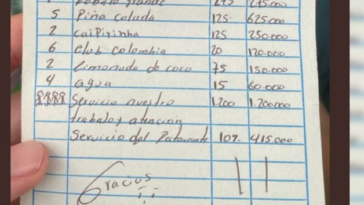 5 Piña colada 125. 625.000
2 caipirinha 125 250.000
6 club colombia 20 120.000
2 limonada de coco 75 150.000
4 agua 15 60.000
Servicio nuestro 1.200 1.200.000
trabajo y atencion
Servicio del 10% 415.000
Gracias